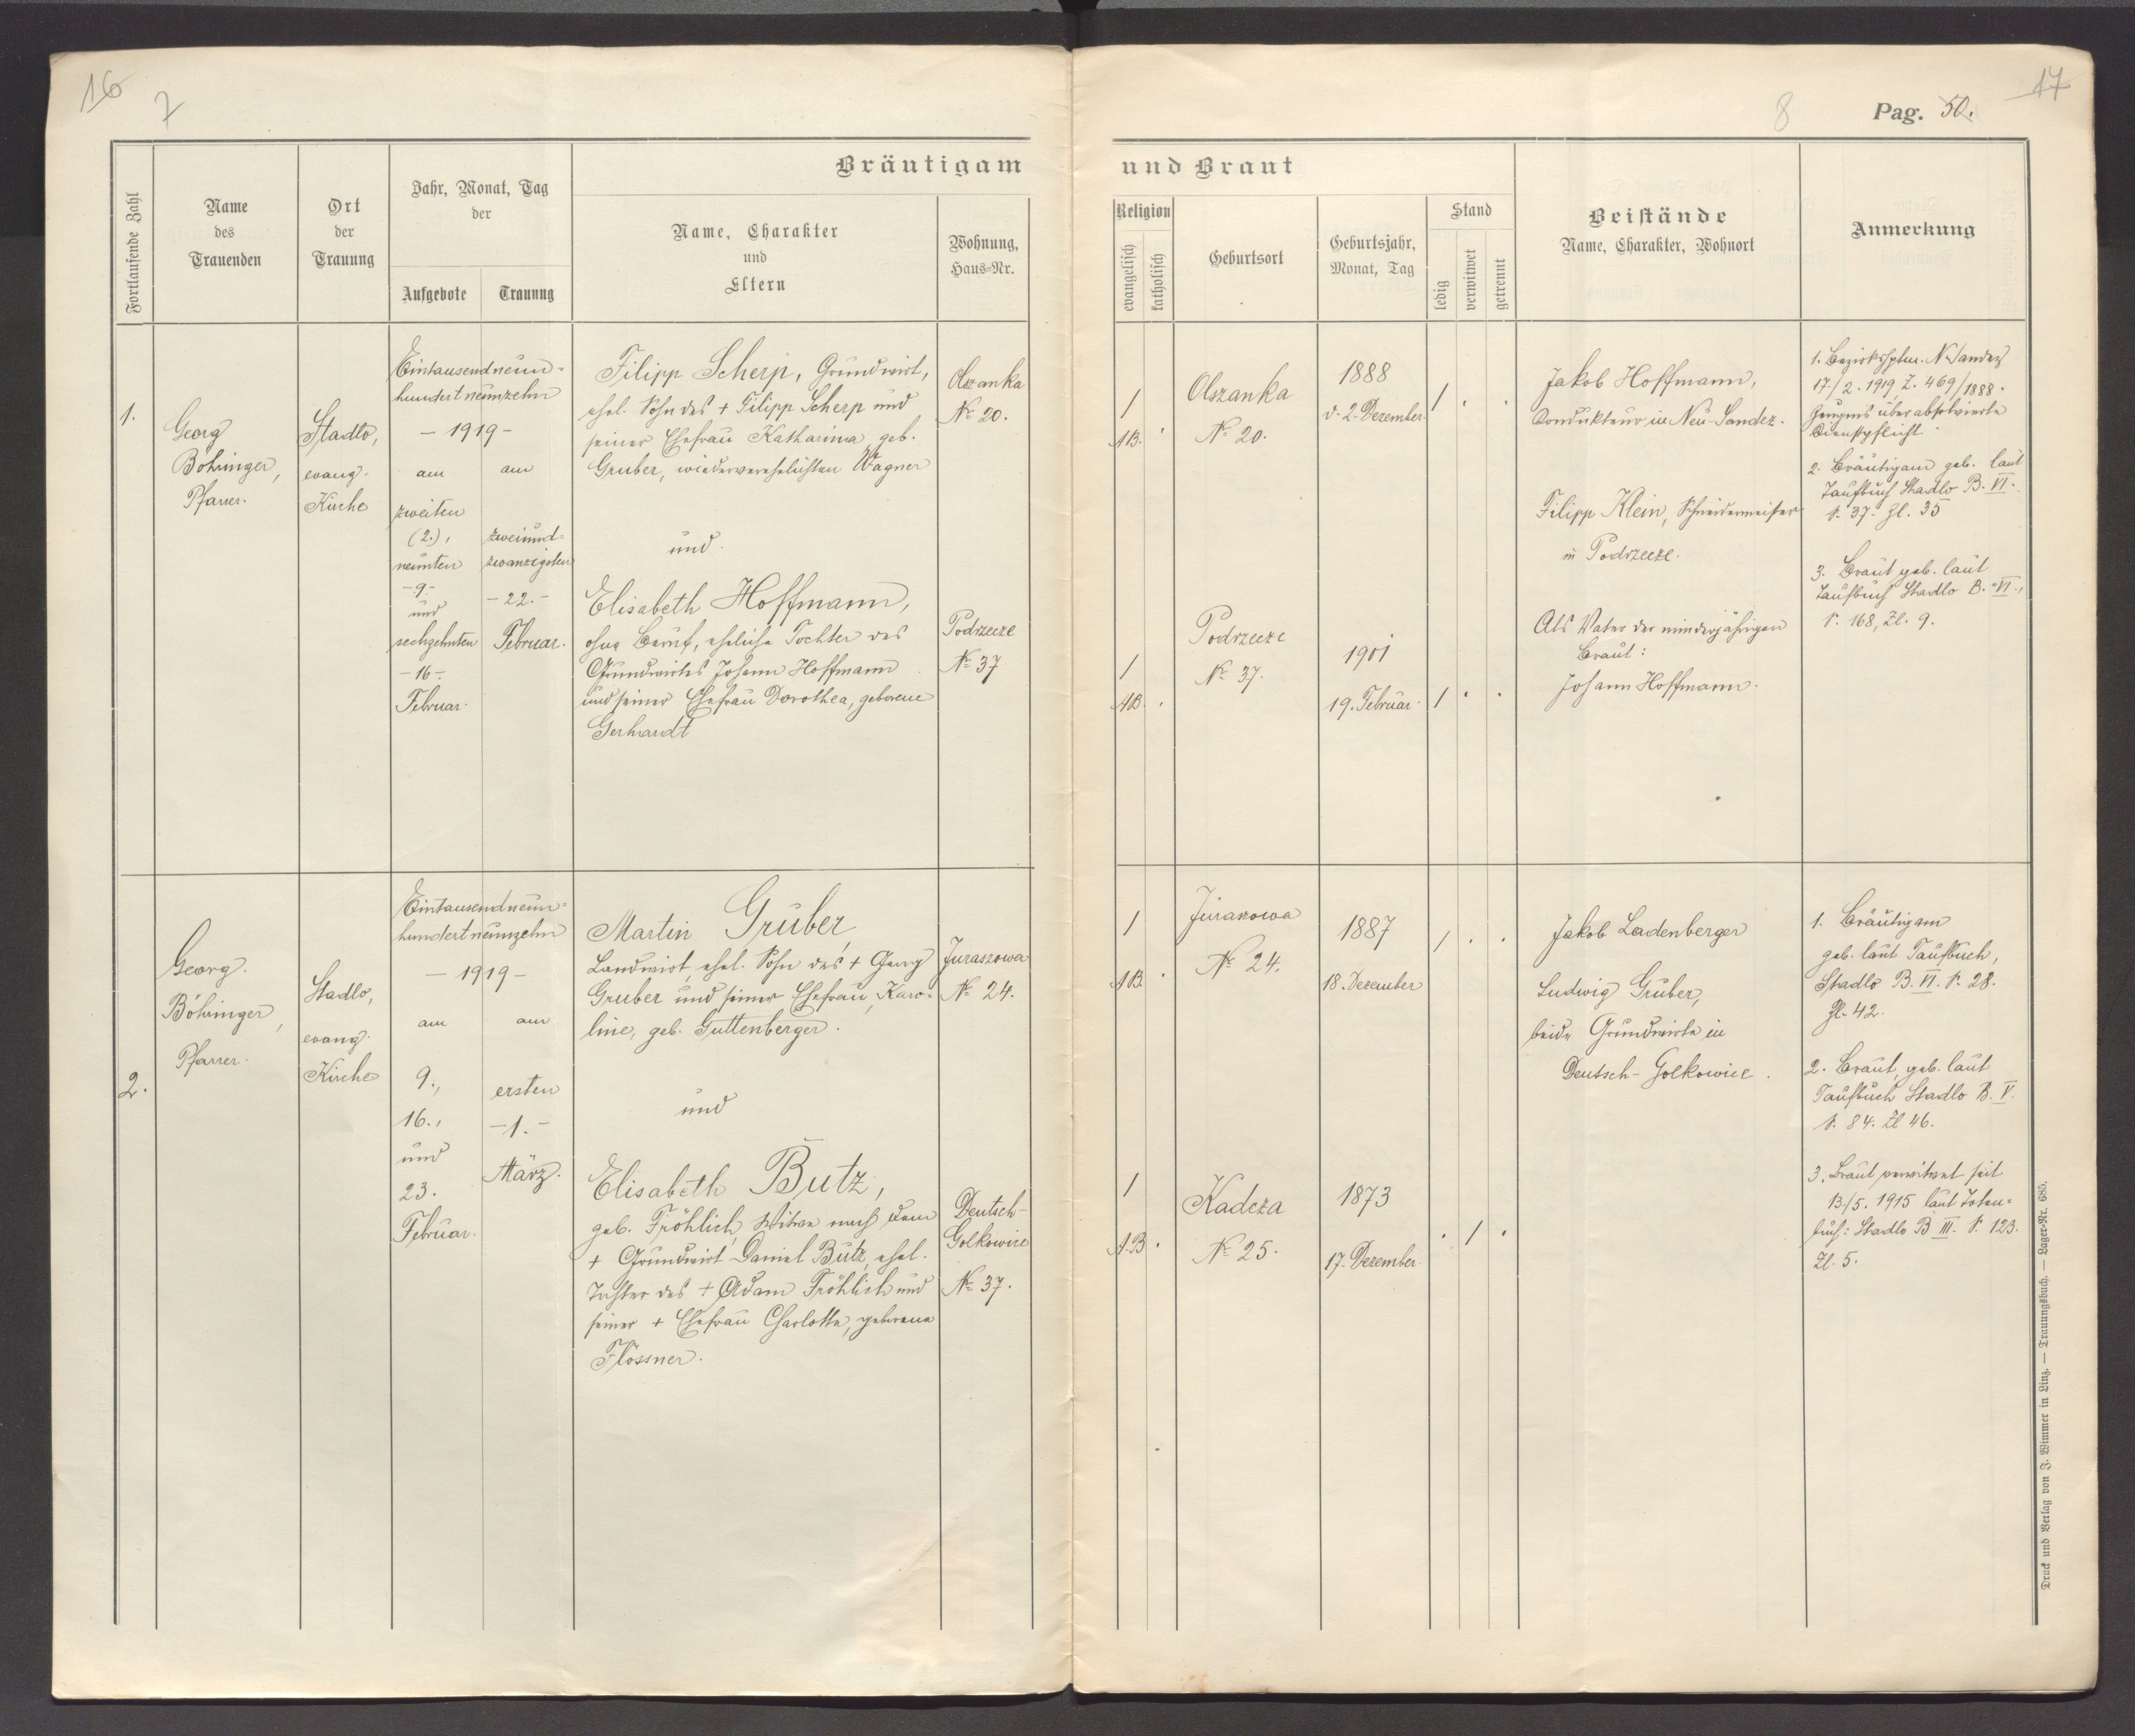 16
7
Bräutigam
Fortlaufende Zahl
Name
des
Trauenden
Ort
der
Trauung
Jahr, Monat, Tag
der
Aufgebote
Trauung
Name, Charakter
und
Eltern
Wohnung,
Haus-Nr.
1.
Georg
Böhringer,
Pfarrer.
Stadlo,
evang.
Kirche
Eintausendneun-
hundertneunzehn
- 1919 -
am
zweiten
(2.),
neunten
- 9. -
und
sechzehnten
- 16 -
Februar.
am
zweiund-
zwanzigsten
- 22. -
Februar.
Filipp Scherp, Grundwirt,
ehel. Sohn des + Filipp Scherp und
seiner Ehefrau Katharina geb.
Gruber, wiederverehelichten Wagner
und
Elisabeth Hoffmann,
ohne Beruf, eheliche Tochter des
Grundwirtes Johann Hoffmann
und seiner Ehefrau Dorothea, geborene
Gerhardt
Olszanka
No 20.
Podrzecze
No 37
2.
Georg
Böhringer,
Pfarrer.
Stadlo,
evang.
Kirche
Eintausendneun-
hundertneunzehn
- 1919 -
am
9.,
16.,
und
23.
Februar.
am
ersten
- 1. -
März.
Martin Gruber,
Landwirt, ehel. Sohn des + Georg
Gruber und seiner Ehefrau, Karo-
line, geb. Guttenberger.
und
Elisabeth Butz,
geb. Fröhlich, Witwe nach dem
+ Grundwirt Daniel Butz, ehel.
Tochter des + Adam Fröhlich und
seiner + Ehefrau Charlotte, geborene
Flössner.
Juraszowa
No 24.
Deutsch-
Golkowice
No 37.
17
8
Pag. 50.
und Braut
Religion
evangelisch
katholisch
Geburtsort
Geburtsjahr,
Monat, Tag
Stand
ledig
verwitwet
getrennt
Beistände
Name, Charakter, Wohnort
Anmerkung
1
AB.
Olszanka
No 20.
1888
d. 2. Dezember
1
Jakob Hoffmann,
Condukteur in Neu-Sandez.
Filipp Klein, Schneidermeister
in Podrzecze.
Als Vater der minderjährigen
Braut:
Johann Hoffmann.
1. Bezirkshptm. N. Sandez
17./2. 1919, Z. 469/1888.
Zeugnis über absolvierte
Dienstpflicht
2. Bräutigam geb. laut
Taufbuch Stadlo B. VI.
P. 37. Zl. 35
3. Braut geb. laut
Taufbuch Stadlo B. VI.,
P. 168, Zl. 9.
1
AB.
Podrzecze
No 37.
1901
19. Februar.
1
1
AB.
Juraszowa
No 24.
1887
18. Dezember
1
Jakob Ladenberger
Ludwig Gruber,
beide Grundwirte in
Deutsch-Golkowice.
1. Bräutigam
geb. laut Taufbuch,
Stadlo B. VI. P. 28.
Zl. 42.
2. Braut geb. laut
Taufbuch Stadlo B. V.
P. 84. Zl 46.
3. Braut verwitwet seit
13/5. 1915 laut Toten-
buch: Stadlo B III. P. 123.
Zl. 5.
1
A.B
Kadcza
No 25.
1873
17. Dezember.
1
Druck und Verlag von J. Wimmer in Linz. — Trauungsbuch. — Lager-Nr. 685.